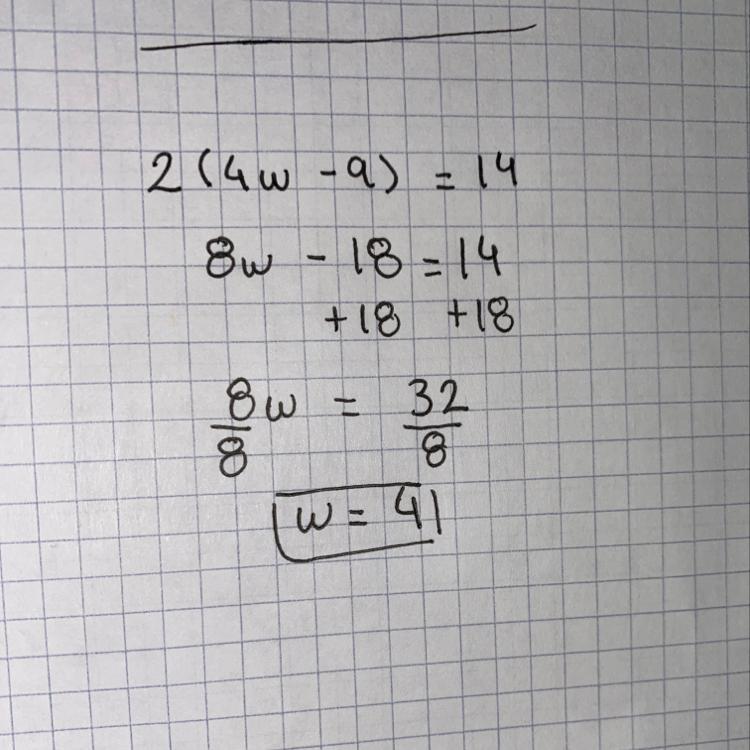 2(4w - 9) = 14
8w - 18 = 14
+18 +18
8w = 32
8 8
w = 4